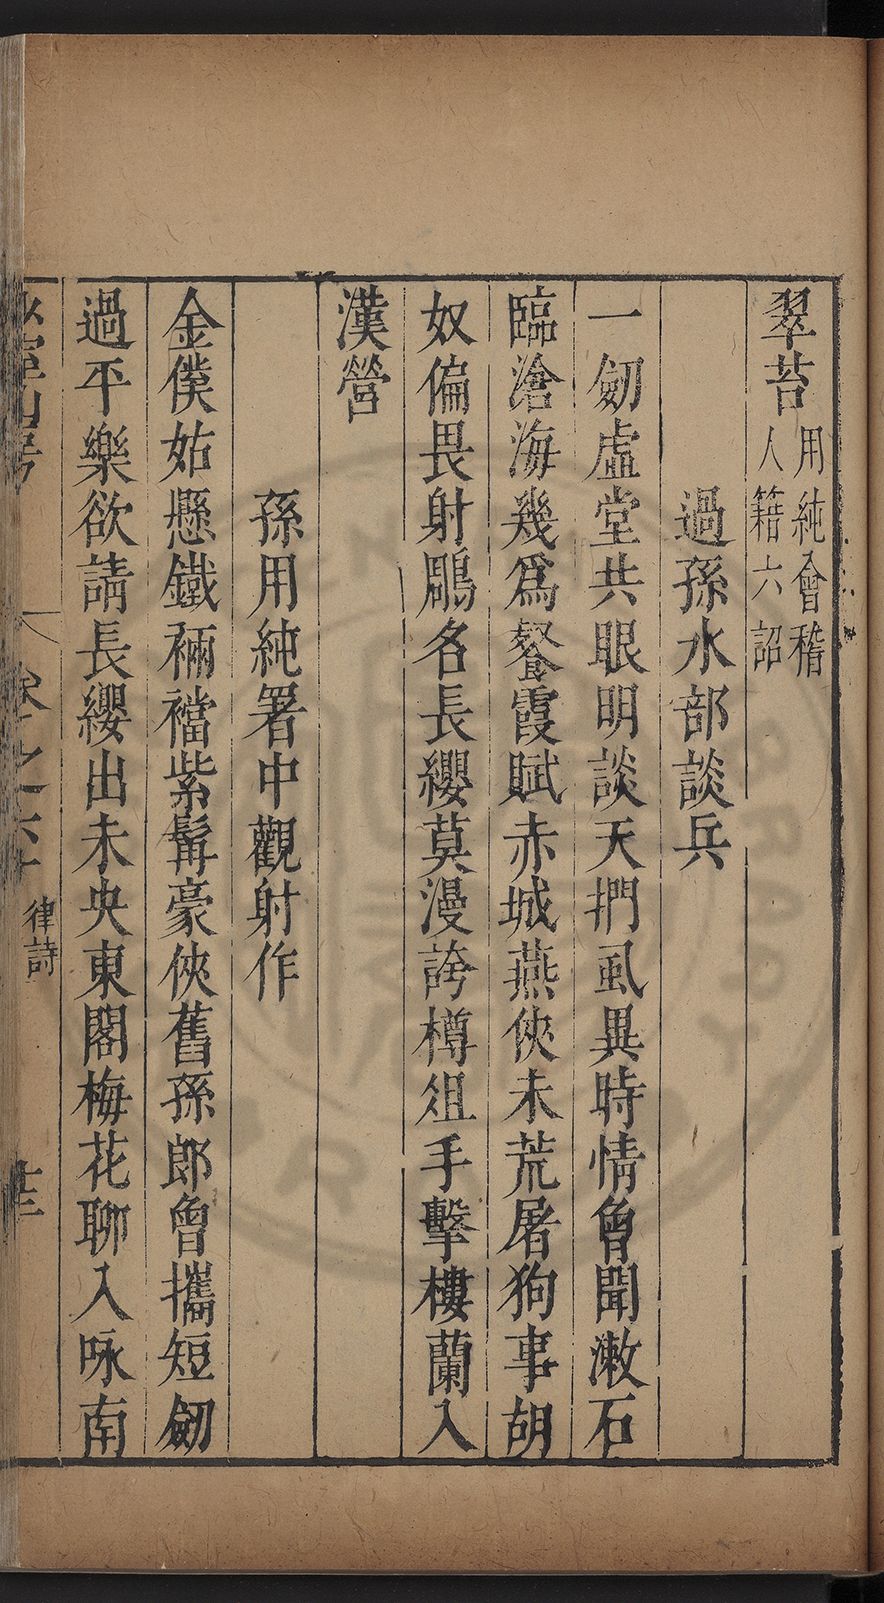 翠苔用純會稽
人籍六詔
過孫水部談兵
一劒虛堂共眼明談天捫虱異時情曾聞漱石
臨滄海幾爲餐霞賦赤城燕俠未荒屠狗事胡
奴偏畏射鵰名長纓莫漫誇樽俎手擊樓蘭入
漢營
孫用純署中觀射作
金僕姑懸鐵裲襠紫髯豪俠舊孫郎曾攜短劒
過平樂欲請長纓出未央東閣梅花聊入咏南
律詩